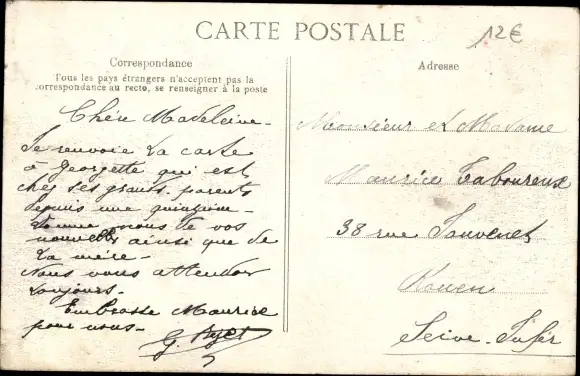 CARTE POSTALE
12€
Correspondance
Tous les pays étrangers n'acceptent pas la
correspondance au recto, se renseigner à la poste
Chère Madeleine -
Je renvoie la carte
à Georgette qui est
chez ses grands-parents
depuis une quinzaine -
Donne-nous de vos
nouvelles ainsi que de
la mère -
Nous vous attendons
toujours -
Embrasse Maurice
pour nous -
G.
Adresse
Monsieur et Madame
Maurice Taboureux
38 rue Jouvenet
Rouen
Seine-Infér